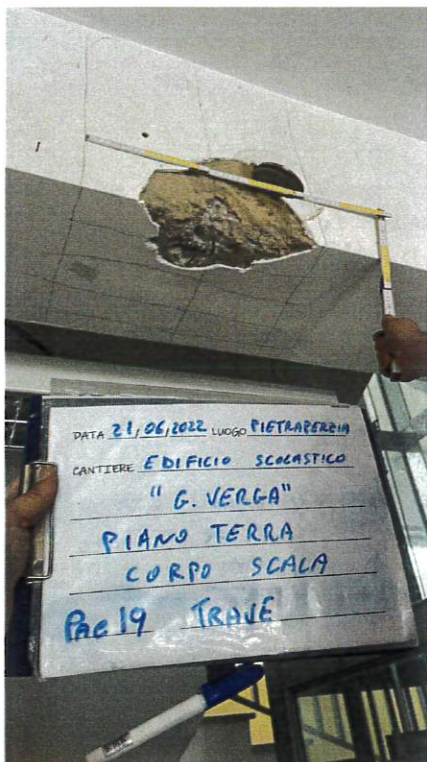 DATA 21/06/2022 LUOGO PIETRAPERZIA
CANTIERE EDIFICIO SCOLASTICO
"G. VERGA"
PIANO TERRA
CORPO SCALA
Pac 19 TRAVE